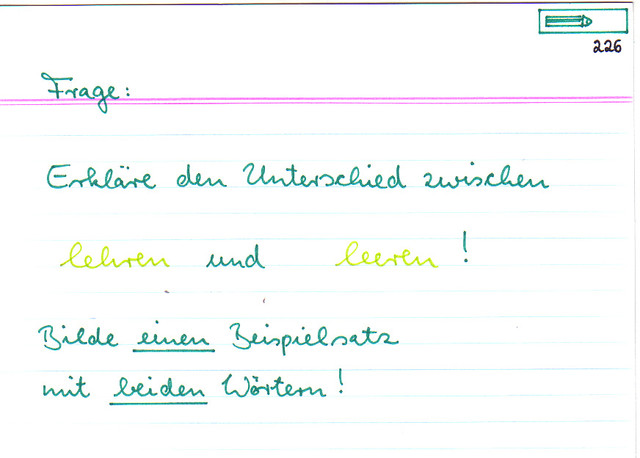 226
Frage:
Erkläre den Unterschied zwischen
lehren und leeren!
Bilde einen Beispielsatz
mit beiden Wörtern!